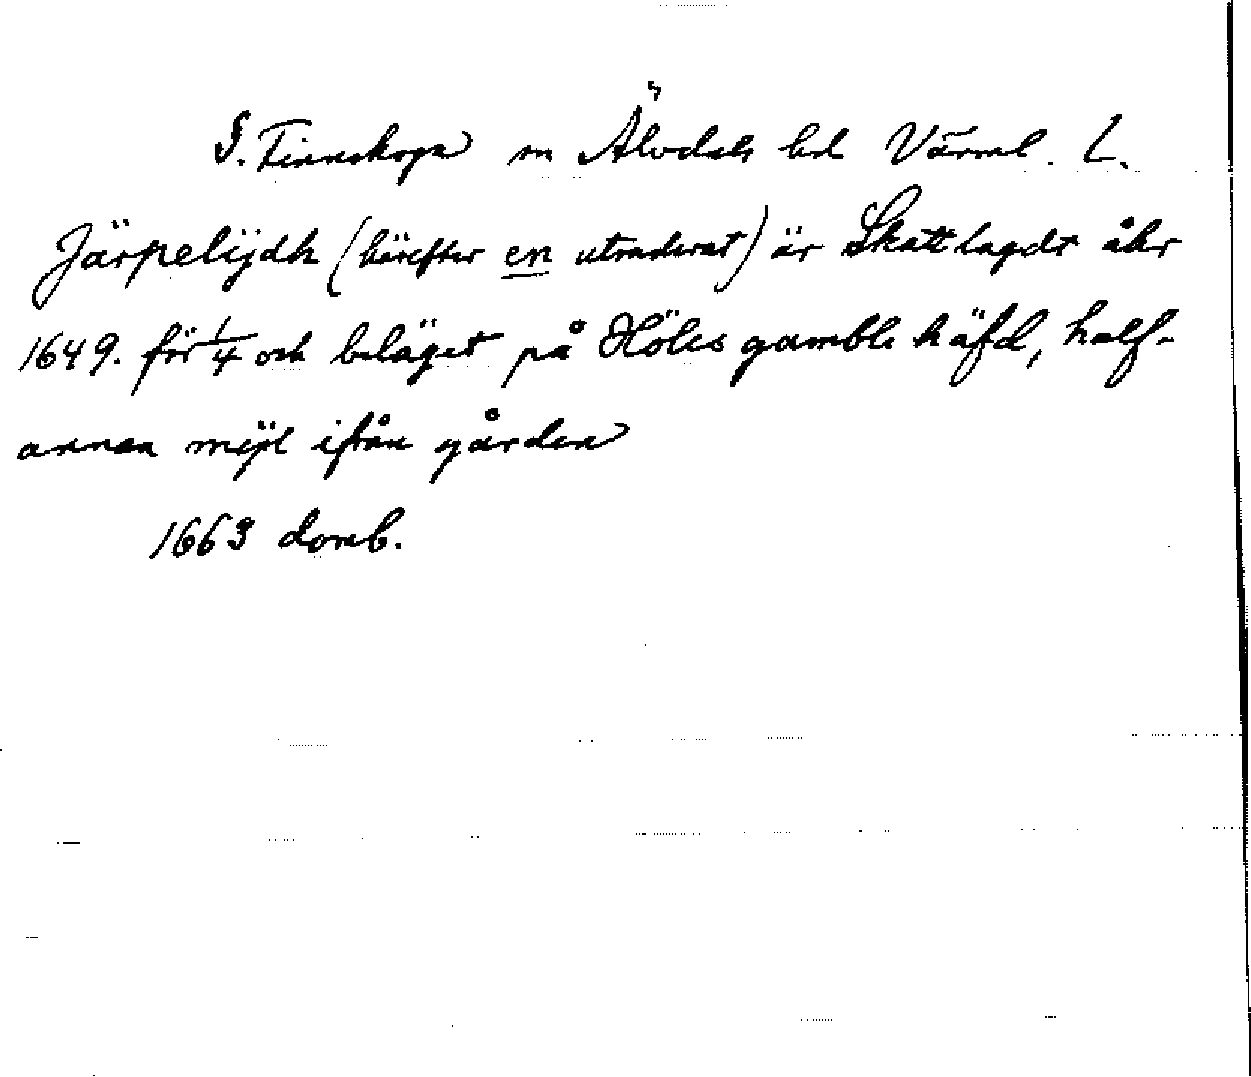 S. Finnskoga sn Älvdals hd Värml. L.
Järpelijdh (härefter en utraderat) är Skattlagdt åhr
1649. för 1/4 och beläget på Höles gamble häfd, half-
annen mijl ifrån gården
1663 domb.